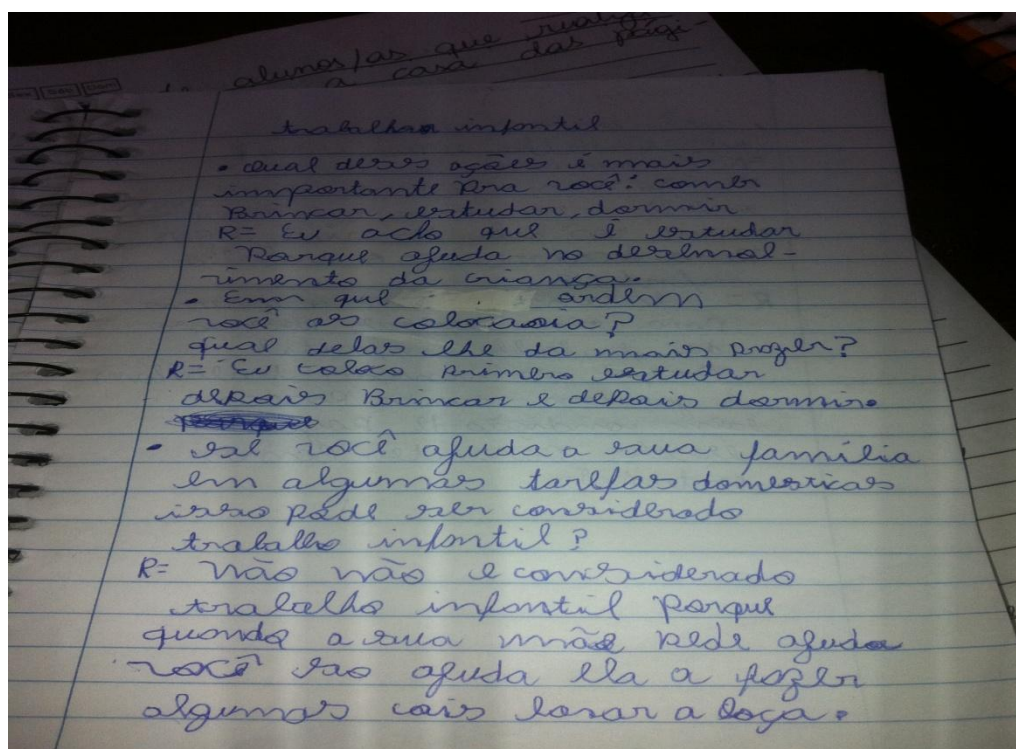 alunos/as que
a casa das pági-
trabalho infantil
• Qual desas ações é mais
importante pra você: comer
Brincar, estudar, dormir
R= Eu acho que é estudar
Porque ajuda no desenvol-
vimento da criança.
• Em que ordem
você as colocaria?
qual delas lhe da mais prazer?
R= Eu coloco primero estudar
depois Brincar e depois dormir.
• sel você ajuda a sua família
em algumas tarefas domesticas
isso pode ser considerado
trabalho infantil?
R= Não não e considerado
trabalho infantil porque
quando a sua mãe pede ajuda
você sao ajuda ela a fazer
algumas cois lavar a loça.